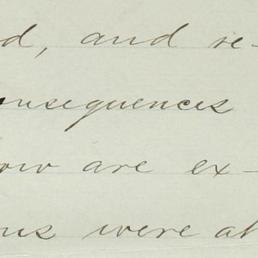 d, and re-
onsequences
ow are ex-
ns were at